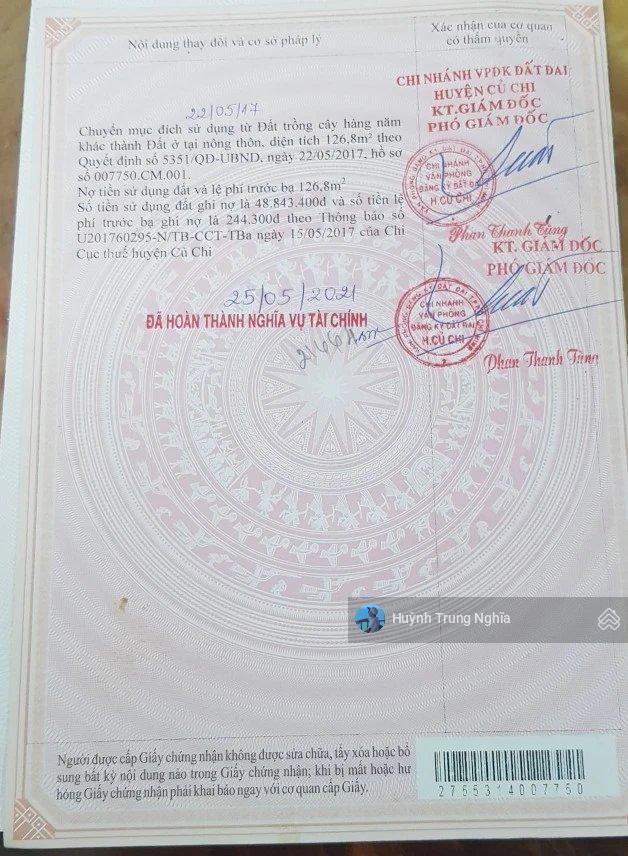 Nội dung thay đổi và cơ sở pháp lý
Xác nhận của cơ quan
có thẩm quyền
22/05/17
Chuyển mục đích sử dụng từ Đất trồng cây hàng năm
khác thành Đất ở tại nông thôn, diện tích 126,8m² theo
Quyết định số 5351/QĐ-UBND, ngày 22/05/2017, hồ sơ
số 007750.CM.001.
Nợ tiền sử dụng đất và lệ phí trước bạ 126,8m²
Số tiền sử dụng đất ghi nợ là 48.843.400đ và số tiền lệ
phí trước bạ ghi nợ là 244.300đ theo Thông báo số
U201760295-N/TB-CCT-TBa ngày 15/05/2017 của Chi
Cục thuế huyện Củ Chi
CHI NHÁNH VPĐK ĐẤT ĐAI
HUYỆN CỦ CHI
KT.GIÁM ĐỐC
PHÓ GIÁM ĐỐC
CHI NHÁNH
VĂN PHÒNG
ĐĂNG KÝ ĐẤT ĐAI
H.CỦ CHI
Phan Thanh Tùng
25/05/2021
ĐÃ HOÀN THÀNH NGHĨA VỤ TÀI CHÍNH
KT. GIÁM ĐỐC
PHÓ GIÁM ĐỐC
CHI NHÁNH
VĂN PHÒNG
ĐĂNG KÝ ĐẤT ĐAI
H.CỦ CHI
Phan Thanh Tùng
Huỳnh Trung Nghĩa
Người được cấp Giấy chứng nhận không được sửa chữa, tẩy xóa hoặc bổ
sung bất kỳ nội dung nào trong Giấy chứng nhận; khi bị mất hoặc hư
hỏng Giấy chứng nhận phải khai báo ngay với cơ quan cấp Giấy.
2755314007750